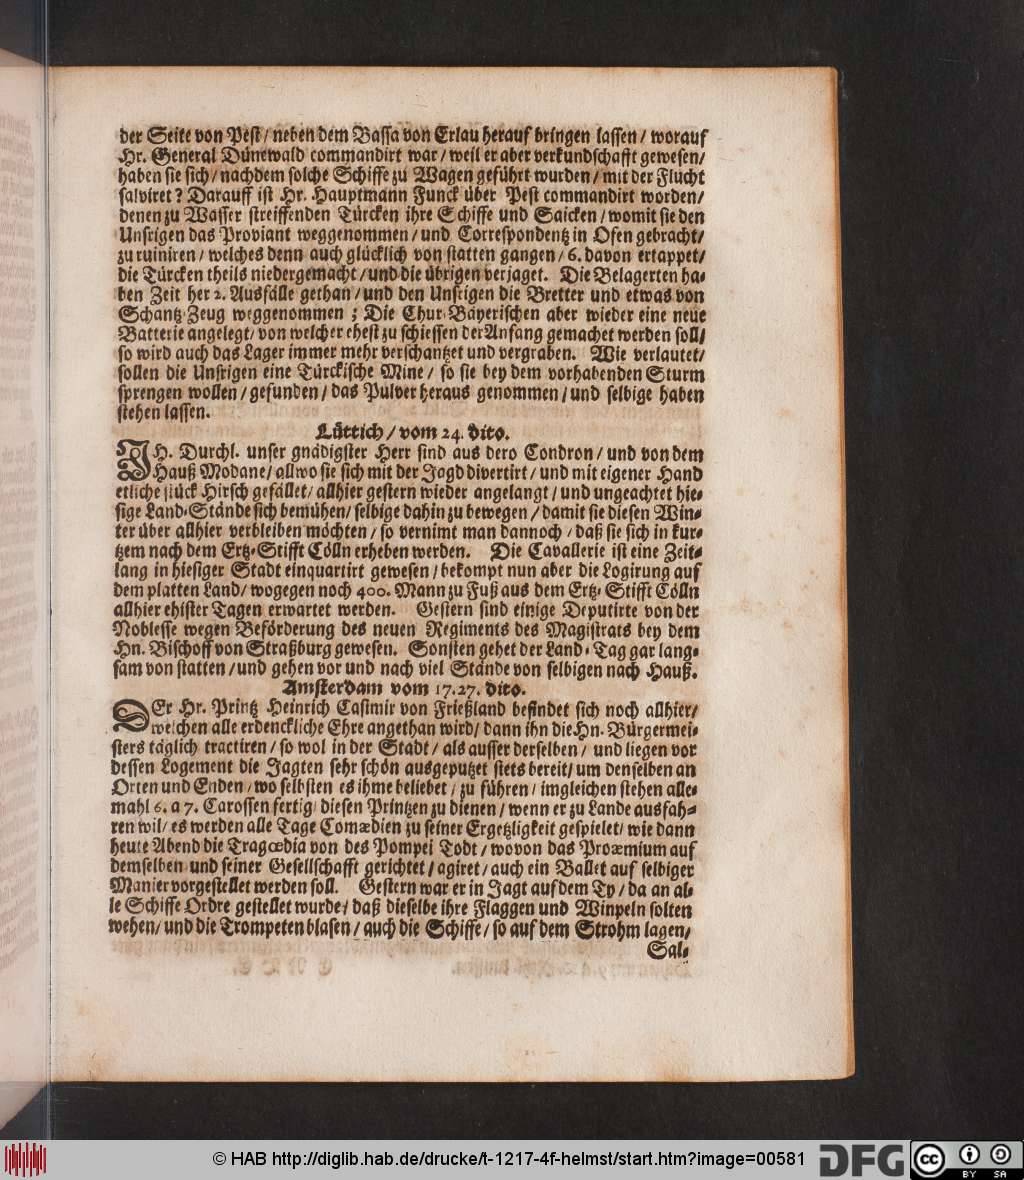 der Seite von Pest / neben dem Bassa von Erlau herauf bringen lassen / worauf
Hr. General Dünewald commandirt war / weil er aber verkundschafft gewesen /
haben sie sich / nachdem solche Schiffe zu Wagen geführt wurden / mit der Flucht
salviret ? Darauff ist Hr. Hauptmann Funck über Pest commandirt worden /
denen zu Wasser streiffenden Türcken ihre Schiffe und Saicken / womit sie den
Unsrigen das Proviant weggenommen / und Correspondentz in Ofen gebracht /
zu ruiniren / welches denn auch glücklich von statten gangen / 6. davon ertappet /
die Türcken theils niedergemacht / und die übrigen verjaget. Die Belagerten ha-
ben Zeit her 2. Ausfälle gethan / und den Unsrigen die Bretter und etwas von
Schantz-Zeug weggenommen ; Die Chur-Bäyerischen aber wieder eine neue
Batterie angelegt / von welcher ehest zu schiessen der Anfang gemachet werden soll /
so wird auch das Lager immer mehr verschantzet und vergraben. Wie verlautet /
sollen die Unsrigen eine Türckische Mine / so sie bey dem vorhabenden Sturm
sprengen wollen / gefunden / das Pulver heraus genommen / und selbige haben
stehen lassen.
Lüttich / vom 24. dito.
JH. Durchl. unser gnädigster Herr sind aus dero Condron / und von dem
Hauß Modane / allwo sie sich mit der Jagd divertirt / und mit eigener Hand
etliche stück Hirsch gefället / allhier gestern wieder angelangt / und ungeachtet hie-
sige Land-Stände sich bemühen / selbige dahin zu bewegen / damit sie diesen Win-
ter über allhier verbleiben möchten / so vernimt man dannoch / daß sie sich in kur-
tzem nach dem Ertz-Stifft Cölln erheben werden. Die Cavallerie ist eine Zeit-
lang in hiesiger Stadt einquartirt gewesen / bekompt nun aber die Logirung auf
dem platten Land / wogegen noch 400. Mann zu Fuß aus dem Ertz-Stifft Cölln
allhier ehister Tagen erwartet werden. Gestern sind einige Deputirte von der
Noblesse wegen Beförderung des neuen Regiments des Magistrats bey dem
Hn. Bischoff von Straßburg gewesen. Sonsten gehet der Land-Tag gar lang-
sam von statten / und gehen vor und nach viel Stände von selbigen nach Hauß.
Amsterdam vom 17.27. dito.
DEr Hr. Printz Heinrich Casimir von Frießland befindet sich noch allhier /
welchen alle erdenckliche Ehre angethan wird / dann ihn die Hn. Bürgermei-
sters täglich tractiren / so wol in der Stadt / als ausser derselben / und liegen vor
dessen Logement die Jagten sehr schön ausgeputzet stets bereit / um denselben an
Orten und Enden / wo selbsten es ihme beliebet / zu führen / imgleichen stehen alle-
mahl 6. a 7. Carossen fertig / diesen Printzen zu dienen / wenn er zu Lande ausfah-
ren wil / es werden alle Tage Comædien zu seiner Ergetzligkeit gespielet / wie dann
heute Abend die Tragœdia von des Pompei Todt / wovon das Proæmium auf
demselben und seiner Gesellschafft gerichtet / agiret / auch ein Ballet auf selbiger
Manier vorgestellet werden soll. Gestern war er in Jagt auf dem Ty / da an al-
le Schiffe Ordre gestellet wurde / daß dieselbe ihre Flaggen und Winpeln solten
wehen / und die Trompeten blasen / auch die Schiffe / so auf dem Strohm lagen /
Sal-
© HAB http://diglib.hab.de/drucke/t-1217-4f-helmst/start.htm?image=00581
DFG
cc BY SA